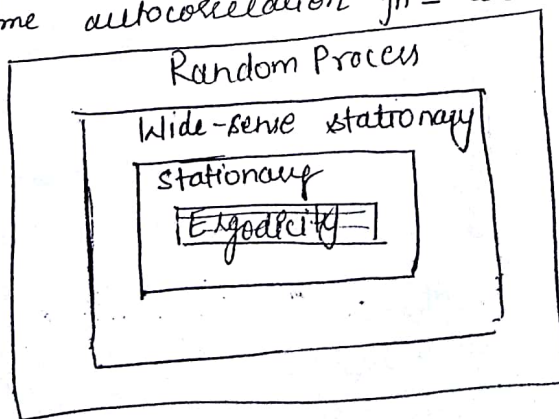 me autocorrelation fn
Random Process
Wide-sense stationary
Stationary
Ergodicity